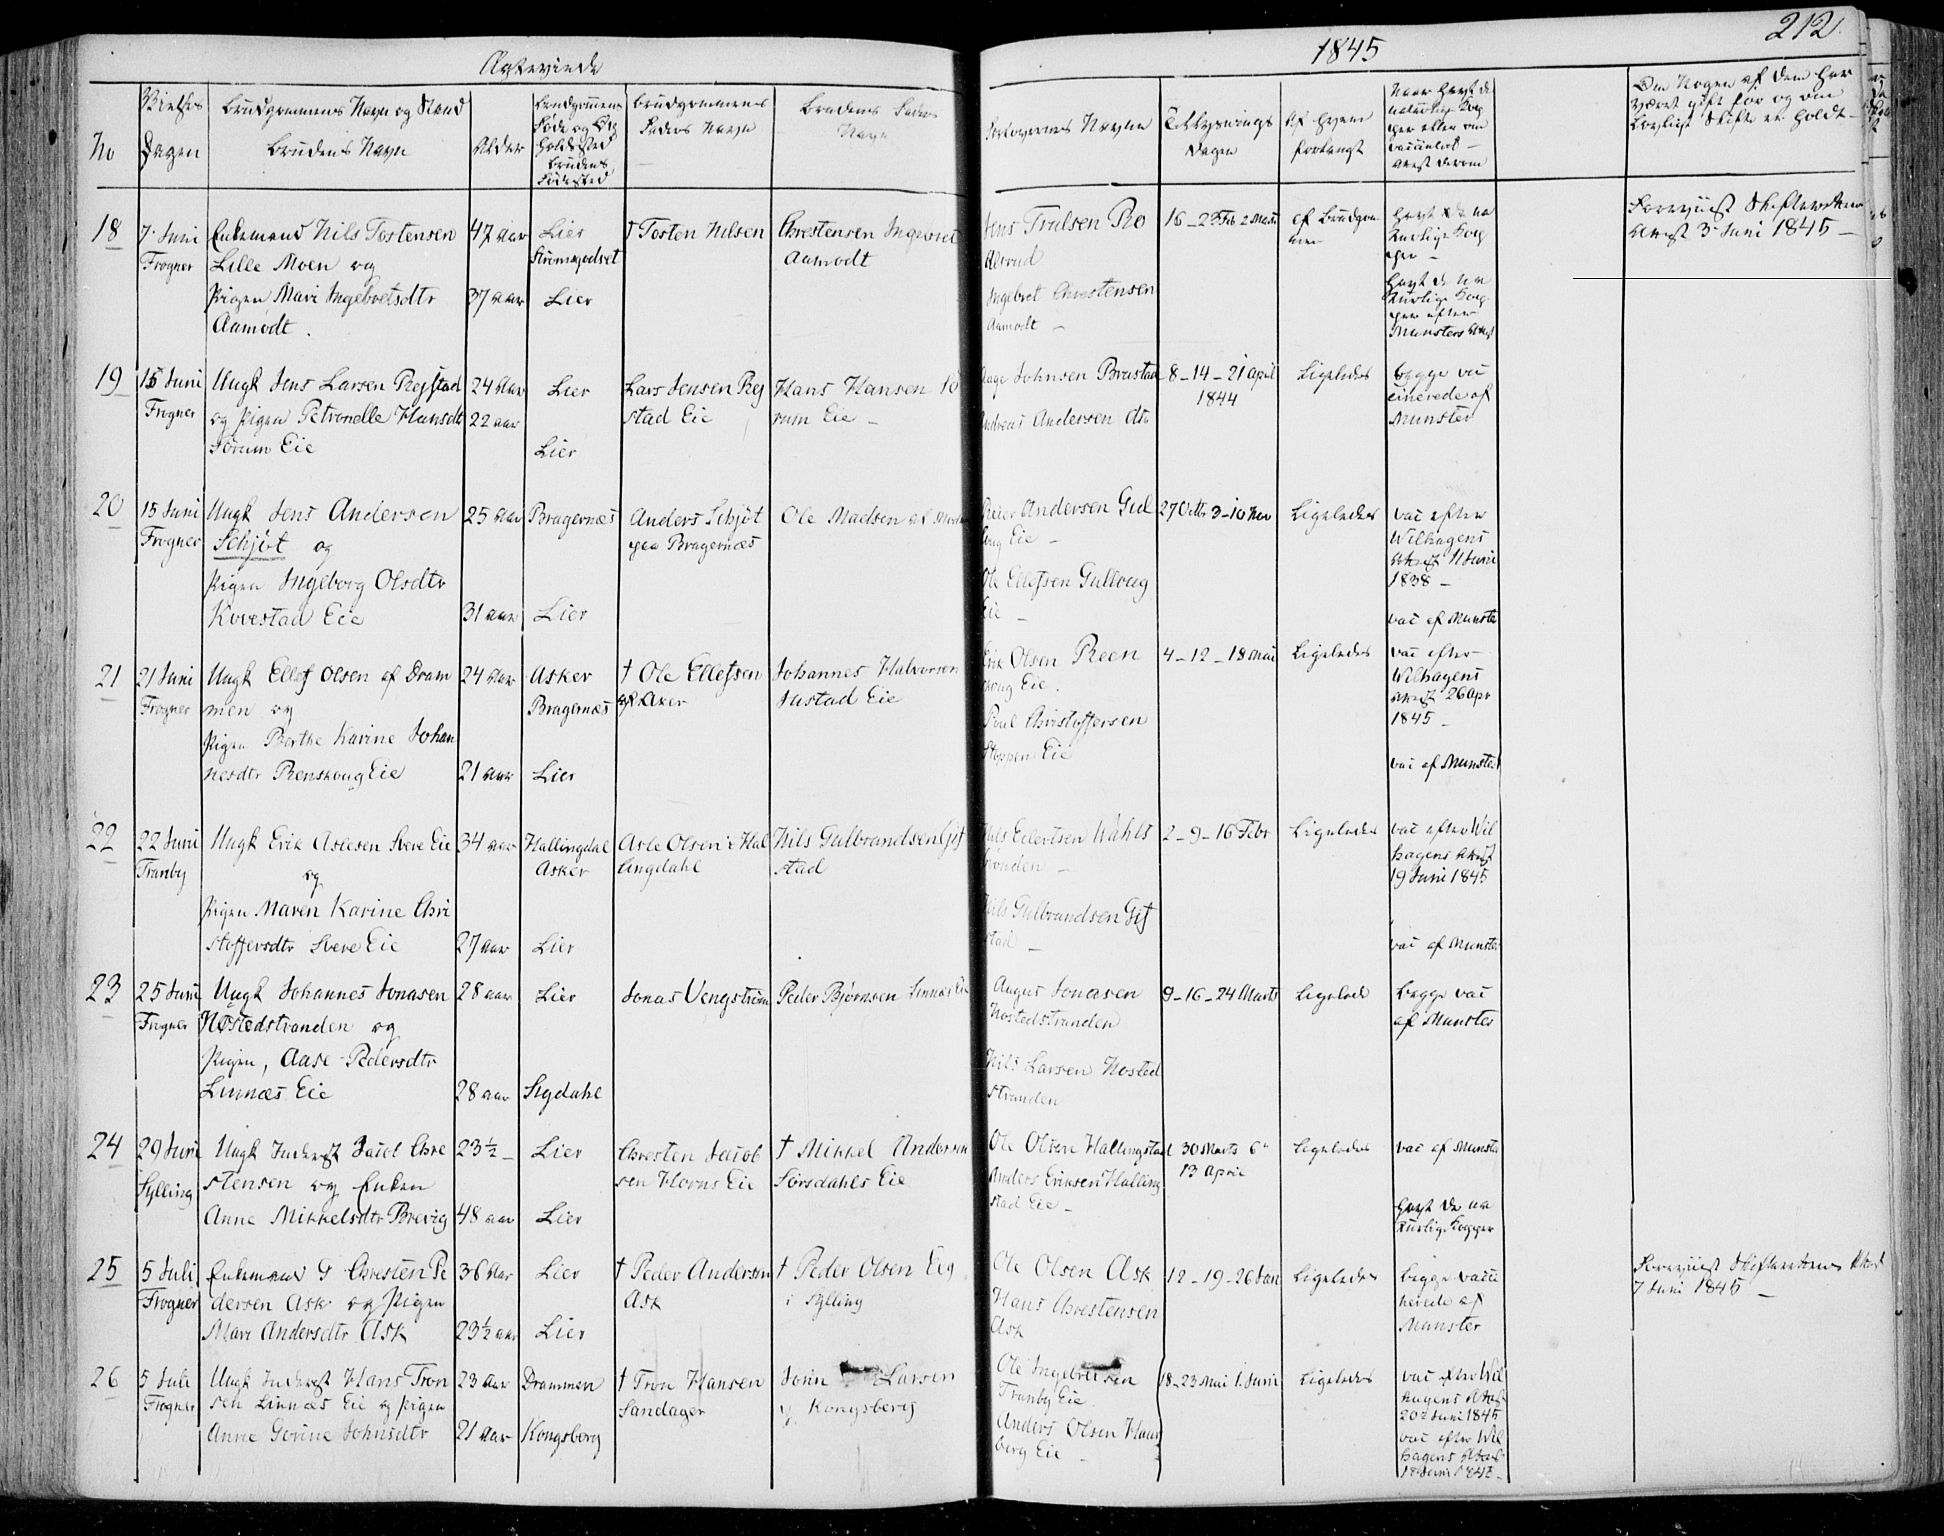 212.
Ægteviede
1845
No
Vielses
Dagen
Brudgommens Navn og Stand
Brudens Navn
Alder
Brudgommens
Føde og Op
holdssted
Brudens
Fødested
Brudgommens
Faders Navn
Brudens Faders
Navn
Forlovernes Navne
Tillysnings
Dagen
Af hvem
forlangt
Om Nogen af dem har
været gift før og om
lovligt Skifte er holdt
18
7. Juni
Frogner
Enkemand Nils Tostensen
Lille Moen og
Pigen Mari Ingebretsdtr
Aamodt.
47 Aar
37 Aar
Lier
Strømsgodset
Lier
† Tosten Nilsen
Christensen Ingebret
Aamodt
Jens Trulsen
Ingebret Christensen
Aamodt –
16 – 23 Feb 2 Marts
af Brudgom
men
havt de na
turlige Kop
per –
havt de na
turlige Kop
per efter
Munsters Attest
Foreviist Skifterettens
Attest 3 Juni 1845 –
19
15 Juni
Frogner
Ungk Jens Larsen Rejstad
og Pigen Petronelle Hansdtr
Sørum Eie
24 Aar
22 aar
Lier
Lier
Lars Jensen Rej
stad Eie
Hans Hansen Sø
rum Eie –
Aage Johnsen Brastad
Andreas Andersen
8 – 14 – 21 April
1844
Ligeledes
begge vac
cinerede af
Munster
20
15 Juni
Frogner
Ungk Jens Andersen
Schjøt og
Pigen Ingeborg Olsdtr
Kovestad Eie
25 Aar
31 aar
Bragernæs
Lier
Anders Schjøt
paa Bragernæs
Ole Madsen af
Peder Andersen Gul
laug Eie –
Ole Ellefsen Gullaug
Eie –
27 Octbr 3 – 10 Nov
Ligeledes
vac efter
Wilhagens
Attest 11 Juni
1838 –
vac af Munster
21
21 Juni
Frogner
Ungk Ellef Olsen af Dram
men og
Pigen Berthe Karine Johan
nesdtr Renskoug Eie
24 Aar
21 Aar
Asker
Bragernæs
Lier
† Ole Ellefsen
af Asker
Johannes Halvorsen
Justad Eie
Erik Olsen Reen
skoug Eie.
Poul Christoffersen
Stoppen Eie
4 – 12 – 18 Mai
Ligeledes
vac efter
Wilhagens
Attest 26 Apr
1845 –
vac af Munster
22
22 Juni
Tranby
Ungk Erik Aslesen Svere Eie
og
Pigen Maren Karine Chri
stoffersdtr Svere Eie
34 aar
27 Aar
Hallingdal
Asker
Lier
Asle Olsen i Hal
lingdahl
Nils Gulbrandsen Gif
stad
Nils Eilertsen Wahls
trønden –
Nils Gulbrandsen Gif
stad –
2 – 9 – 16 Febr
Ligeledes
vac efter Wil
hagens Attest
19 Juni 1845
vac af Munster
23
25 Juni
Frogner
Ungk Johannes Jonasen
Nøstedstranden og
Pigen, Aase Pedersdtr
Linnæs Eie
28 aar
28 aar
Lier
Sigdahl
Jonas Vengstrøm
Peder Bjørnsen Linnæs Eie
August Jonasen
Nøstedstranden
Nils Larsen Nøsted
stranden
9 – 16 – 24 Marts
Ligelede
begge vac
af Munster
24
29 Juni
Sylling
Ungk Inderst Jacob Chre
stensen og Enken
Anne Mikkelsdtr Brevig
23½ –
48 aar
Lier
Lier
Chresten Jacob
sen Horns Eie
† Mikkel Andersen
Sørsdahls Eie
Ole Olsen Hallingstad
Anders Eriksen Halling
stad Eie –
30 Marts 6te
13 April
Ligeledes
vac af Munster
havt de na
turlige Kopper
25
5 Juli
Frogner
Enkemand G Chresten Pe
dersen Ask og Pigen
Mari Andersdtr Ask
36 Aar
23½ aar
Lier
Lier
† Peder Andersen
Ask
† Peder Olsen Eeg
i Sylling
Ole Olsen Ask
Hans Chrestensen
Ask
12 – 19 – 26 Jan
Ligeledes
begge vacci
nerede af
Munster
Foreviist Skifterettens Attest
7 Juni 1845 –
26
5 Juli
Frogner
Ungk Inderst Hans Tron
sen Linnæs Eie og Pigen
Anne Gorine Johnsdtr
23 Aar
21 Aar
Drammen
Kongsberg
† Tron Hansen
Sandager
John Larsen
Kongsberg
Ole Ingebretsen
Tranby Eie.
Anders Olsen Haug
berg Eie –
18 – 23 Mai 1. Juni
Ligeledes
vac efter Wil
hagens Attest
20de Juni 1845
vac efter Wil
hagens Attest
18 Juni 1845 –